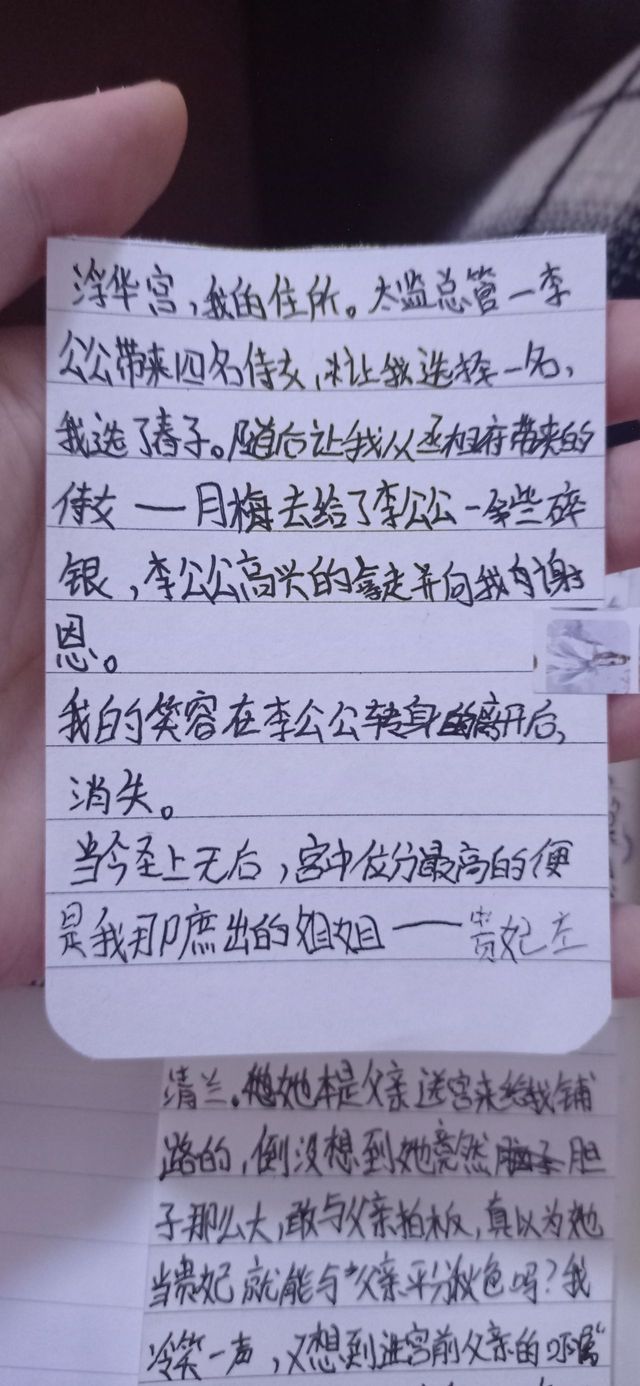 浮华宫,我的住所。太监总管一李
公公带来四名侍女,让我选择一名,
我选了春子。随后让我从丞相府带来的
侍女——月梅去给了李公公一些碎
银,李公公高兴的拿走并向我谢
恩。
我的笑容在李公公转身离开后,
消失。
当今圣上无后,宫中位分最高的便
是我那庶出的姐姐——贵妃左
清兰。她本是父亲送宫来给我铺
路的,倒没想到她竟然胆
子那么大,敢与父亲拍板,真以为她
当贵妃就能与父亲平分秋色吗?我
冷笑一声,又想到进宫前父亲的叮嘱